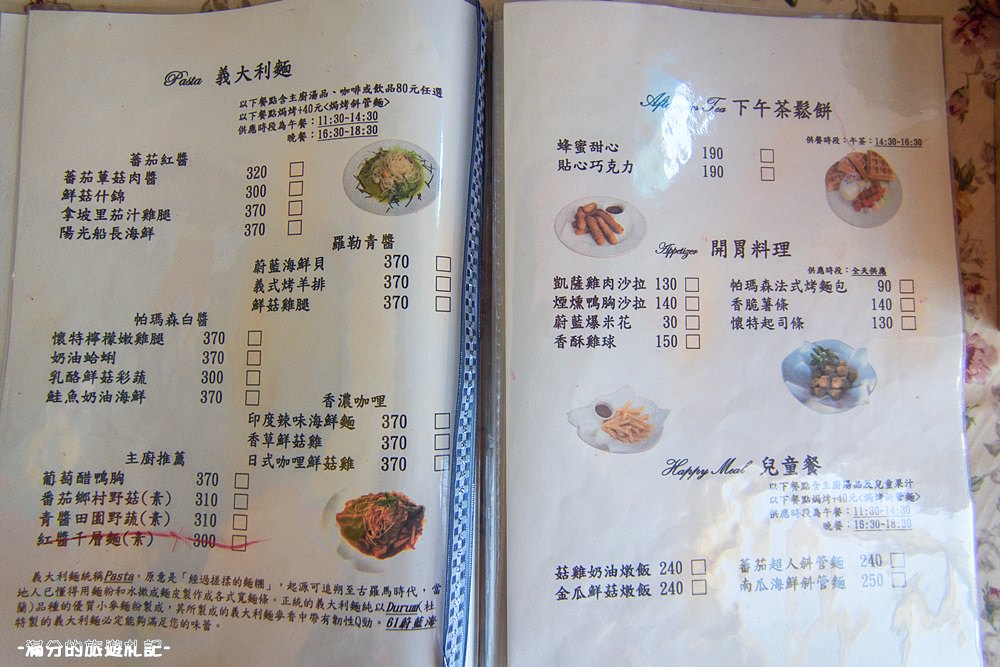 Pasta 義大利麵
以下餐點含主廚湯品、咖啡或飲品80元任選
以下餐點焗烤+40元<焗烤斜管麵>
供應時段為午餐：11:30~14:30
晚餐：16:30~18:30
蕃茄紅醬
蕃茄蕈菇肉醬 320 □
鮮菇什錦 300 □
拿坡里茄汁雞腿 370 □
陽光船長海鮮 370 □
羅勒青醬
蔚藍海鮮貝 370 □
義式烤羊排 370 □
鮮菇雞腿 370 □
帕瑪森白醬
懷特檸檬嫩雞腿 370 □
奶油蛤蜊 370 □
乳酪鮮菇彩蔬 300 □
鮭魚奶油海鮮 370 □
香濃咖哩
印度辣味海鮮麵 370 □
香草鮮菇雞 370 □
日式咖哩鮮菇雞 370 □
主廚推薦
葡萄醋鴨胸 370 □
蕃茄鄉村野菇(素) 310 □
青醬田園野蔬(素) 310 □
紅醬千層麵(素) 300 □
義大利麵統稱Pasta，原意是「經過搓揉的麵糰」，起源可追溯至古羅馬時代，當
地人已懂得用麵粉和水揪成麵皮製作成各式寬麵條。正統的義大利麵純以Durum(杜
蘭)品種的優質小麥麵粉製成，其所製成的義大利麵麥香中帶有韌性Q勁。61蔚藍海
特製的義大利麵必定能夠滿足您的味蕾。
-滿分的旅遊札記-
Tea 下午茶鬆餅
供餐時段：午茶：14:30~16:30
蜂蜜甜心 190 □
貼心巧克力 190 □
Appetizer 開胃料理
供應時段：全天供應
凱薩雞肉沙拉 130 □
煙燻鴨胸沙拉 140 □
蔚藍爆米花 30 □
香酥雞球 150 □
帕瑪森法式烤麵包 90 □
香脆薯條 140 □
懷特起司條 130 □
Happy Meal 兒童餐
以下餐點含主廚湯品及兒童果汁
以下餐點焗烤+40元<焗烤斜管麵>
供應時段為午餐：11:30~14:30
晚餐：16:30~18:30
菇雞奶油燉飯 240 □
金瓜鮮菇燉飯 240 □
蕃茄超人斜管麵 240 □
南瓜海鮮斜管麵 250 □